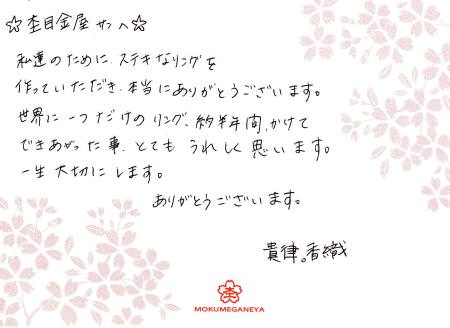 ☆杢目金屋サンへ☆
私達のために、ステキなリングを
作っていただき、本当にありがとうございます。
世界に一つだけのリング、約半年間、かけて
できあがった事、とても うれしく思います。
一生大切にします。
ありがとうございます。
貴律。香織
MOKUMEGANEYA